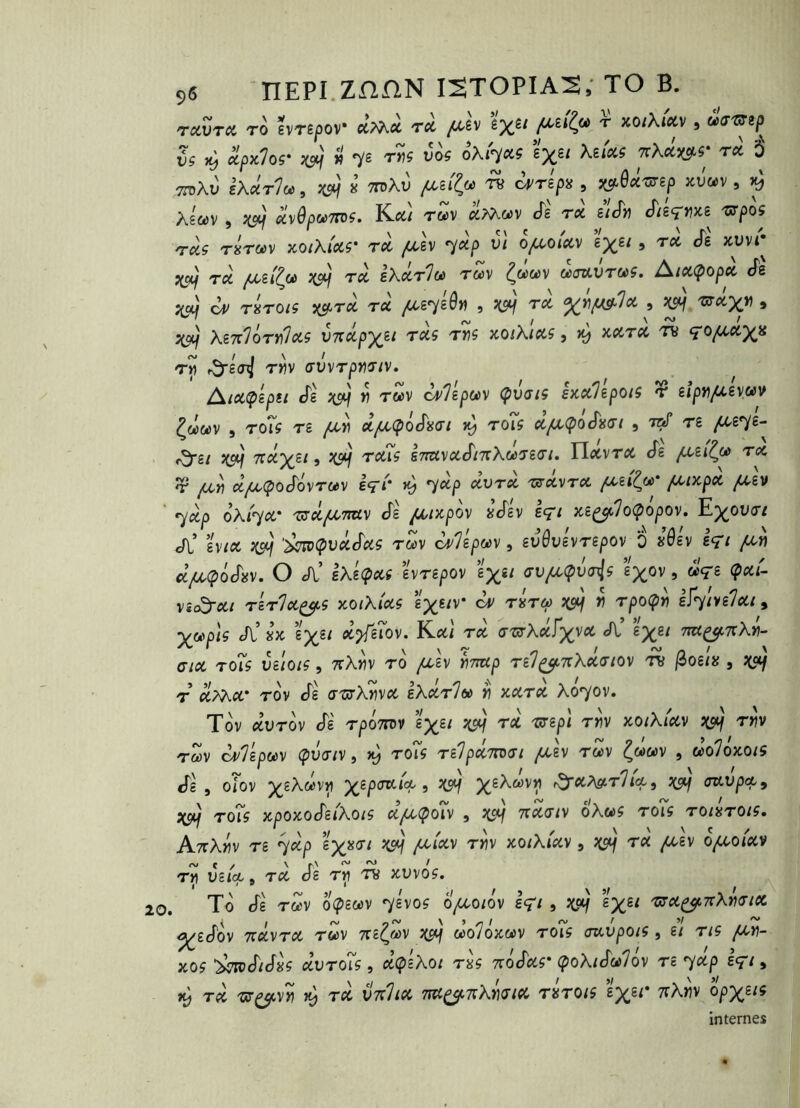 96 ΠΕΡΙ ΖΩΩΝ ΙΣΤΟΡΙΑΣ, ΤΟ Β.
ταῦτα τὸ ἔντερον· ἀλλὰ τὰ μὲν ἔχει μείζω τ̀ κοιλίαν, ὥσπερ
ὗς ϗ ἄρκτος· καὶ ἥ γε τῆς ὑὸς ὀλίγας ἔχει λείας πλάκας· τὰ δ̀
πολὺ ἐλάττω, καὶ ȣ̓ πολὺ μείζω τȣ͂ ἐντέρȣ, καθάπερ κύων, ϗ
λέων, καὶ ἄνθρωπος. Καὶ τῶν ἄλλων δὲ τὰ εἴδη διέστηκε πρὸς
τὰς τȣ́των κοιλίας· τὰ μὲν γὰρ ὑὶ ὁμοίαν ἔχει, τὰ δὲ κυνί·
καὶ τὰ μείζω καὶ τὰ ἐλάττω τῶν ζώων ὡσαύτως. Διαφορὰ δὲ
καὶ ἐν τȣ́τοις κατὰ τὰ μεγέθη, καὶ τὰ χήματα, καὶ πάχη,
καὶ λεπτότητας ὑπάρχει τὰς τῆς κοιλίας, ϗ κατὰ τȣ͂ στομάχȣ
τῇ θέσει τὴν σύντρησιν.
Διαφέρει δὲ καὶ ἡ τῶν ἐντέρων φύσις ἑκατέροις τῶν εἰρημένων
ζώων, τοῖς τε μὴ ἀμφόδȣσι ϗ τοῖς ἀμφόδȣσι, τῷ τε μεγέ-
θει καὶ πάχει, καὶ ταῖς ἐπαναδιπλώσεσι. Πάντα δὲ μείζω τὰ
τῶν μὴ ἀμφοδόντων ἐστί· ϗ γὰρ αὐτὰ πάντα μείζω· μικρὰ μὲν
γὰρ ὀλίγα· πάμπαν δὲ μικρὸν ȣ̓δέν ἐστι κερατοφόρον. Ἔχουσι
δ' ἔνια καὶ ἀποφυάδας τῶν ἐντέρων, εὐθυέντερον δ̀ ȣ̓θέν ἐστι μὴ
ἀμφόδȣν. Ὁ δ' ἐλέφας ἔντερον ἔχει συμφύσεις ἔχον, ὥστε φαί-
νεσθαι τέτταρας κοιλίας ἔχειν· ἐν τȣ́τῳ καὶ ἡ τροφὴ ἐγγίνεται,
χωρὶς δ' ȣ̓κ ἔχει ἀγγεῖον. Καὶ τὰ σπλάγχνα δ' ἔχει παραπλή-
σια τοῖς ὑείοις, πλὴν τὸ μὲν ἧπαρ τετραπλάσιον τȣ͂ βοείȣ, καὶ
τ' ἄλλα· τὸν δὲ σπλῆνα ἐλάττω ἢ κατὰ λόγον.
Τὸν αὐτὸν δὲ τρόπον ἔχει καὶ τὰ περὶ τὴν κοιλίαν καὶ τὴν
τῶν ἐντέρων φύσιν, ϗ τοῖς τετράποσι μὲν τῶν ζώων, ὠοτόκοις
δὲ, οἷον χελώνῃ χερσαίᾳ, καὶ χελώνῃ θαλαττίᾳ, καὶ σαύρᾳ,
καὶ τοῖς κροκοδείλοις ἀμφοῖν, καὶ πᾶσιν ὅλως τοῖς τοιȣ́τοις.
Ἁπλῆν τε γὰρ ἔχȣσι καὶ μίαν τὴν κοιλίαν, καὶ τὰ μὲν ὁμοίαν
τῇ ὑείᾳ, τὰ δὲ τῇ τȣ͂ κυνός.
20. Τὸ δὲ τῶν ὄφεων γένος ὅμοιόν ἐστι, καὶ ἔχει παραπλήσια
σχεδὸν πάντα τῶν πεζῶν καὶ ὠοτόκων τοῖς σαύροις, εἴ τις μῆ-
κος ἀποδιδȣ̀ς αὐτοῖς, ἀφέλοι τȣ̀ς πόδας· φολιδωτόν τε γάρ ἐστι,
ϗ τὰ πρανῆ ϗ τὰ ὕπτια παραπλήσια τȣ́τοις ἔχει· πλὴν ὄρχεις
internes